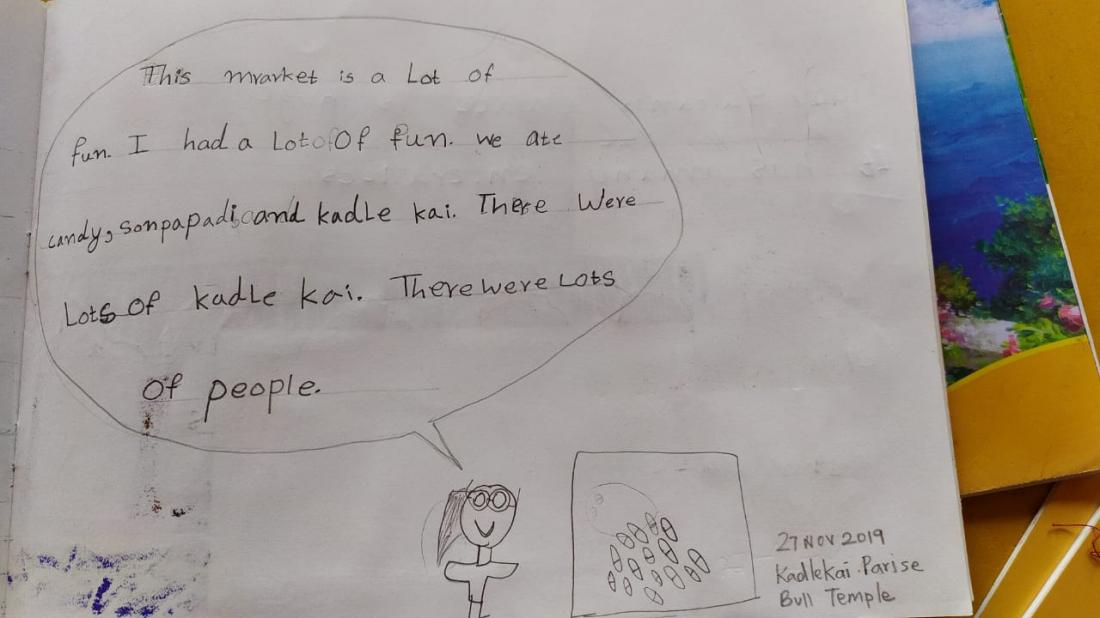 This mrarket is a Lot of
fun. I had a Lot Of fun. we ate
candy, sonpapadi, and kadLe kai. There Were
Lots Of kadLe kai. There were Lots
Of people.
27 NOV 2019
KadleKai Parise
Bull Temple